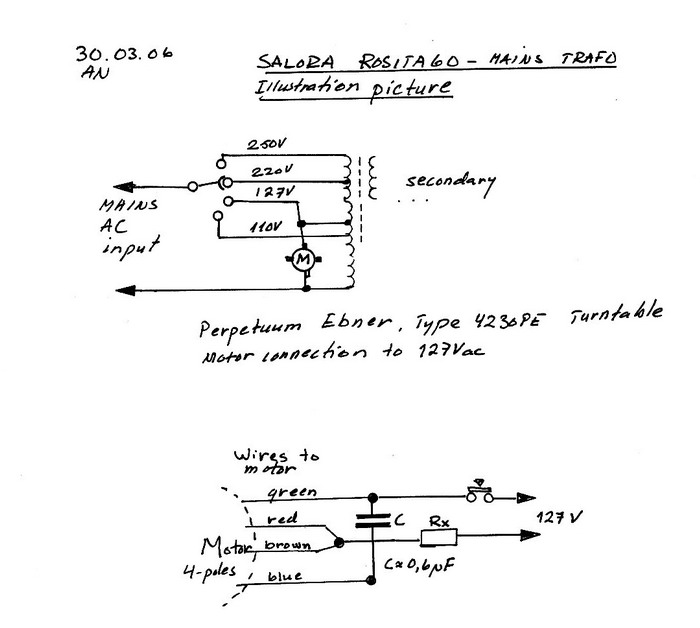 30.03.06
AN
SALORA ROSITA60 - MAINS TRAFO
Illustration picture
250V
220V
127V
110V
MAINS
AC
input
M
secondary
....
Perpetuum Ebner, Type 4230PE Turntable
Motor connection to 127Vac
Wires to
motor
green
red
brown
blue
Motor
4-poles
C
Rx
127V
C≈0,6µF